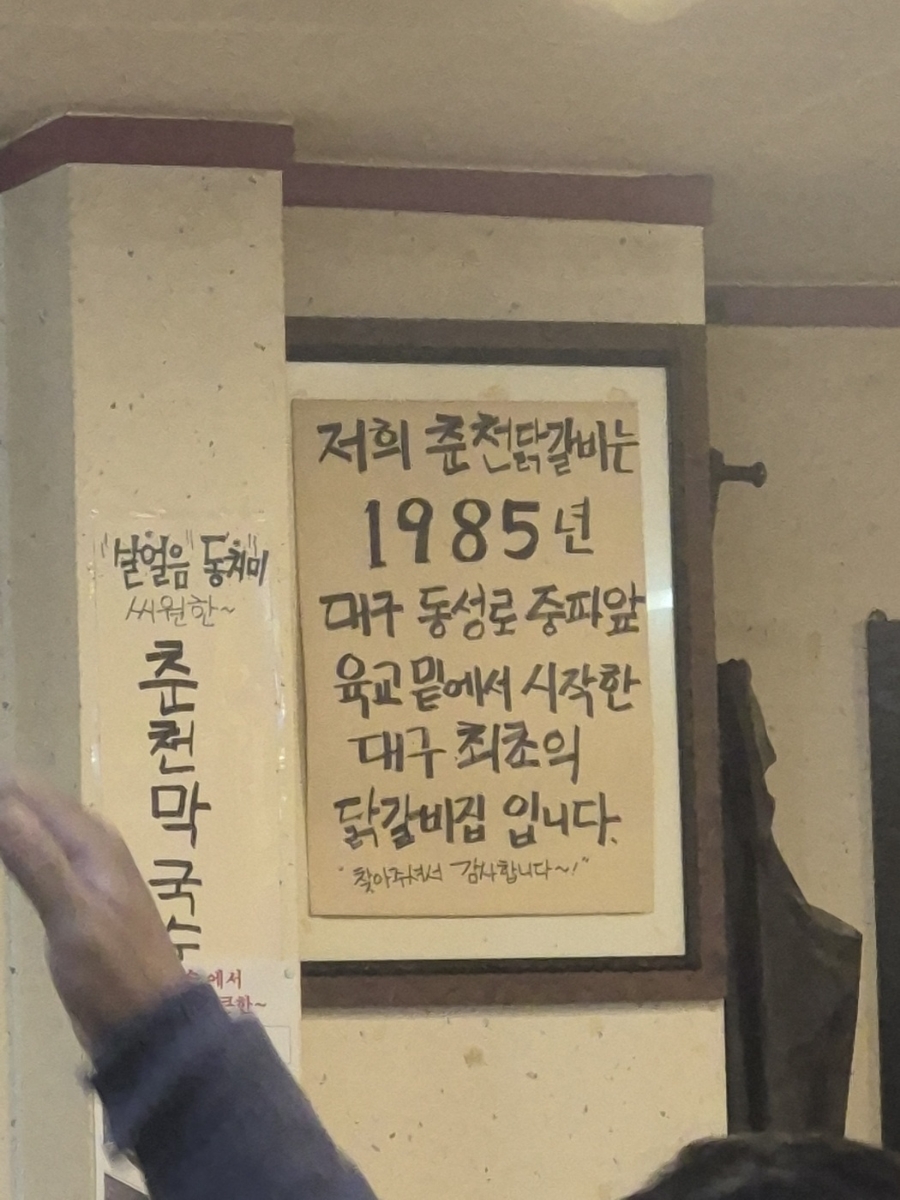 "살얼음" 동치미
씨원한~
춘천막국수
에서
큰한~
저희 춘천닭갈비는
1985년
대구 동성로 중파앞
육교 밑에서 시작한
대구 최초의
닭갈비집 입니다.
"찾아주셔서 감사합니다~!"